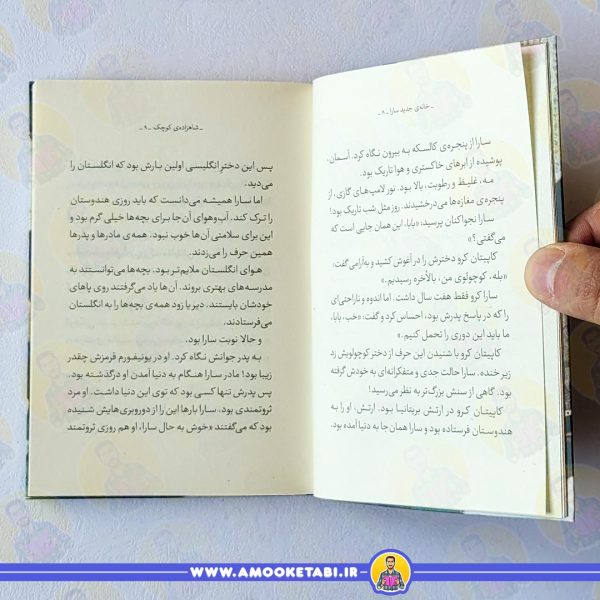 خانه‌ی جدید سارا _ ۸ _
سارا از پنجره‌ی کالسکه به بیرون نگاه کرد. آسمان،
پوشیده از ابرهای خاکستری و هوا تاریک بود.
مه، غلیظ و رطوبت، بالا بود. نور لامپ‌های گازی، از
پنجره‌ی مغازه‌ها می‌درخشیدند. روز مثل شب تاریک بود!
سارا نجواکنان پرسید: «بابا، این همان جایی است که
می‌گفتی؟»
کاپیتان کرو دخترش را در آغوش کشید و به‌آرامی گفت:
«بله، کوچولوی من، بالأخره رسیدیم.»
سارا کرو فقط هفت سال داشت. اما اندوه و ناراحتی‌ای
را که در پاسخ پدرش بود، احساس کرد و گفت: «خب، بابا،
ما باید این دوری را تحمل کنیم.»
کاپیتان کرو با شنیدن این حرف از دختر کوچولویش زد
زیر خنده. سارا حالت جدی و متفکرانه‌ای به خودش گرفته
بود. گاهی از سنش بزرگ‌تر به نظر می‌رسید!
کاپیتان کرو در ارتش بریتانیا بود. ارتش، او را به
هندوستان فرستاده بود و سارا همان جا به دنیا آمده بود.
_ شاهزاده‌ی کوچک _ ۹ _
پس این دختر انگلیسی اولین بارش بود که انگلستان را
می‌دید.
اما سارا همیشه می‌دانست که باید روزی هندوستان
را ترک کند. آب‌وهوای آن‌جا برای بچه‌ها خیلی گرم بود و
این برای سلامتی آن‌ها خوب نبود. همه‌ی مادرها و پدرها
همین حرف را می‌زدند.
هوای انگلستان ملایم‌تر بود. بچه‌ها می‌توانستند به
مدرسه‌های بهتری بروند. آن‌ها یاد می‌گرفتند روی پاهای
خودشان بایستند. دیر یا زود همه‌ی بچه‌ها را به انگلستان
می‌فرستادند.
و حالا نوبت سارا بود.
به پدر جوانش نگاه کرد. او در یونیفورم قرمزش چقدر
زیبا بود! مادر سارا هنگام به دنیا آمدن او درگذشته بود.
پس پدرش تنها کسی بود که توی این دنیا داشت. او مرد
ثروتمندی بود. سارا بارها این را از دوروبری‌هایش شنیده
بود که می‌گفتند «خوش به حال سارا، او هم روزی ثروتمند
WWW.AMOOKETABI.IR